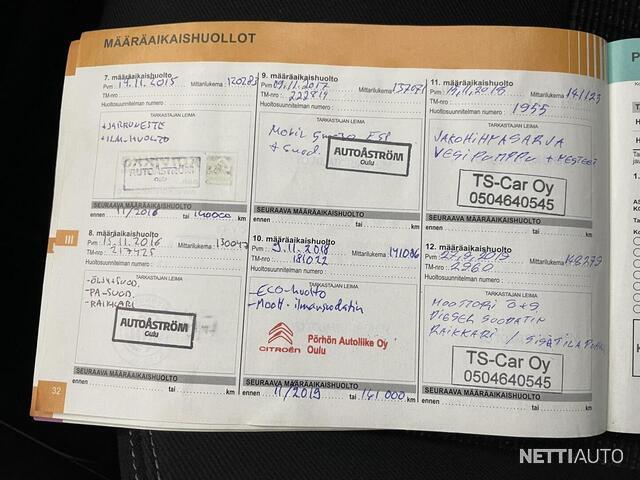 MÄÄRÄAIKAISHUOLLOT
7. määräaikaishuolto
Pvm 19.11.2015 Mittarilukema 120283
TM-nro
Huoltosuunnitelman numero
TARKASTAJAN LEIMA
+JARRUNESTE
+ILM.HUOLTO
AUTOÅSTRÖM
Oulu
SEURAAVA MÄÄRÄAIKAISHUOLTO
ennen 11/2016 tai 140000 km
8. määräaikaishuolto
Pvm 15.11.2016 Mittarilukema 130047
TM-nro 217425
Huoltosuunnitelman numero
TARKASTAJAN LEIMA
-ÖLJYNSUOD.
-PA-SUOD.
-RAIKKARI
AUTOÅSTRÖM
Oulu
SEURAAVA MÄÄRÄAIKAISHUOLTO
ennen tai km
9. määräaikaishuolto
Pvm 09.11.2017 Mittarilukema
TM-nro 222819
Huoltosuunnitelman numero
TARKASTAJAN LEIMA
Mobil ESP
+ Suod.
AUTOÅSTRÖM
Oulu
SEURAAVA MÄÄRÄAIKAISHUOLTO
ennen tai km
10. määräaikaishuolto
Pvm 9.11.2018 Mittarilukema 141006
TM-nro 181022
Huoltosuunnitelman numero :
TARKASTAJAN LEIMA
-Eco-huolto
-Moott.ilmansuodatin
CITROËN
Pörhön Autoliike Oy
Oulu
SEURAAVA MÄÄRÄAIKAISHUOLTO
ennen 11/2019 tai 161 000 km
11. määräaikaishuolto
Pvm 2018 Mittarilukema 141123
TM-nro
Huoltosuunnitelman numero : 1955
TARKASTAJAN LEIMA
JAKOHIHNASARJA
VESIPUMPPU + NESTEET
TS-Car Oy
0504640545
SEURAAVA MÄÄRÄAIKAISHUOLTO
ennen tai km
12. määräaikaishuolto
Pvm 27.9.2019 Mittarilukema 148279
TM-nro 2360
Huoltosuunnitelman numero :
TARKASTAJAN LEIMA
MOOTTORI Ö+S
DIESEL SUODATIN
RAIKKARI / SISÄTILA
TS-Car Oy
0504640545
SEURAAVA MÄÄRÄAIKAISHUOLTO
ennen tai km
III
32
NETTIAUTO